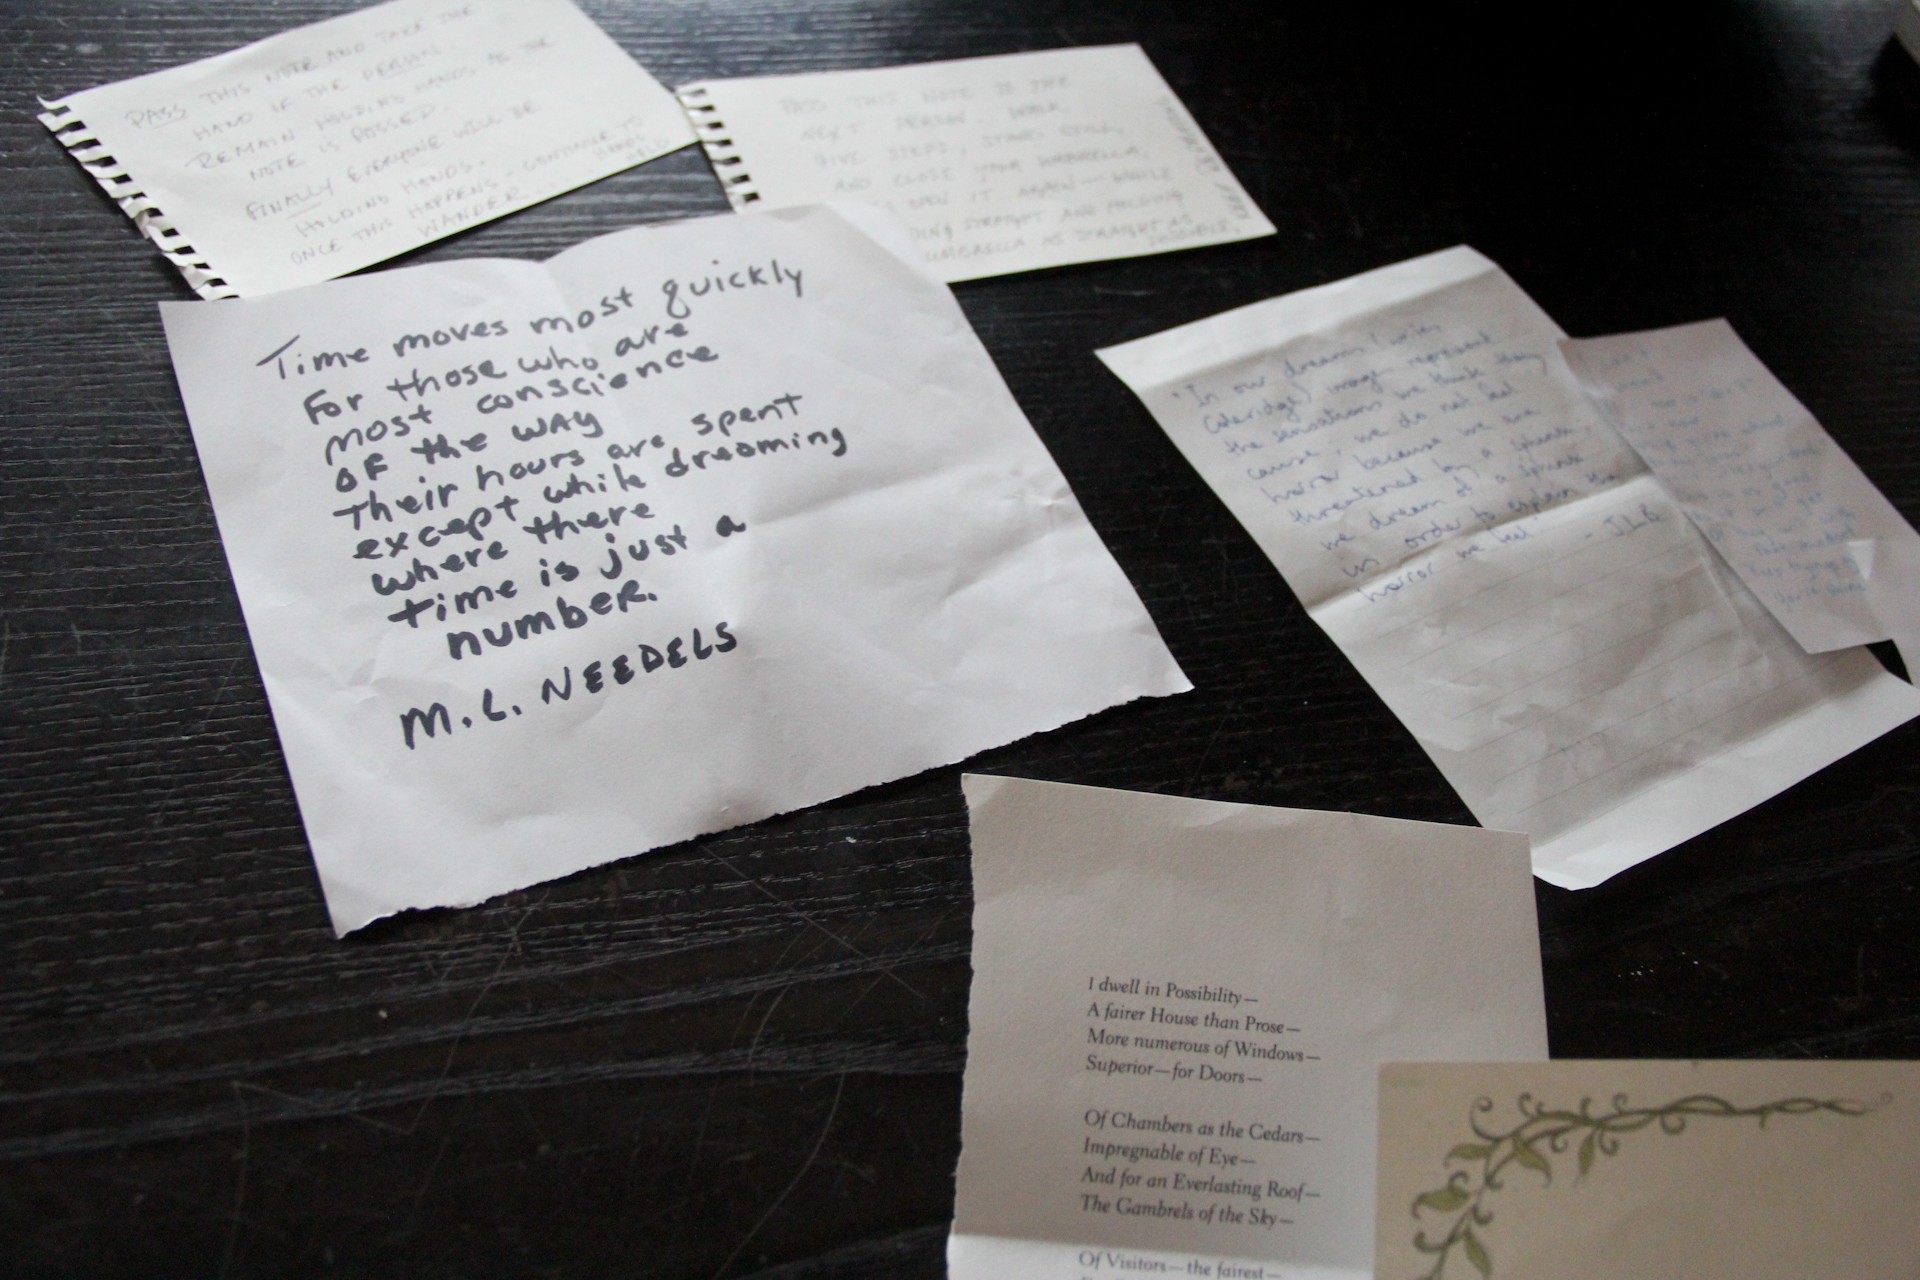 PASS THIS NOTE AND TAKE THE
HAND OF THE PERSON.
REMAIN HOLDING HANDS AS THE
NOTE IS PASSED.
FINALLY EVERYONE WILL BE
HOLDING HANDS.
ONCE THIS HAPPENS - CONTINUE TO
WANDER...
HANDS
HELD
PASS THIS NOTE TO THE
NEXT PERSON. WALK
FIVE STEPS, STAND STILL,
AND CLOSE YOUR UMBRELLA.
OPEN IT AGAIN — WHILE
STRAIGHT AND HOLDING
UMBRELLA AS STRAIGHT AS
POSSIBLE.
Time moves most quickly
For those who are
most conscience
OF the WAY
Their hours are spent
except while dreaming
where there
time is just a
number.
M.L. NEEDELS
"In our dreams (writes
Coleridge) images represent
the sensations we think they
cause, we do not feel
horror because we are
threatened by a sphinx,
we dream of a sphinx
in order to explain the
horror we feel." - JLB
I dwell in Possibility—
A fairer House than Prose—
More numerous of Windows—
Superior—for Doors—
Of Chambers as the Cedars—
Impregnable of Eye—
And for an Everlasting Roof—
The Gambrels of the Sky—
Of Visitors—the fairest—